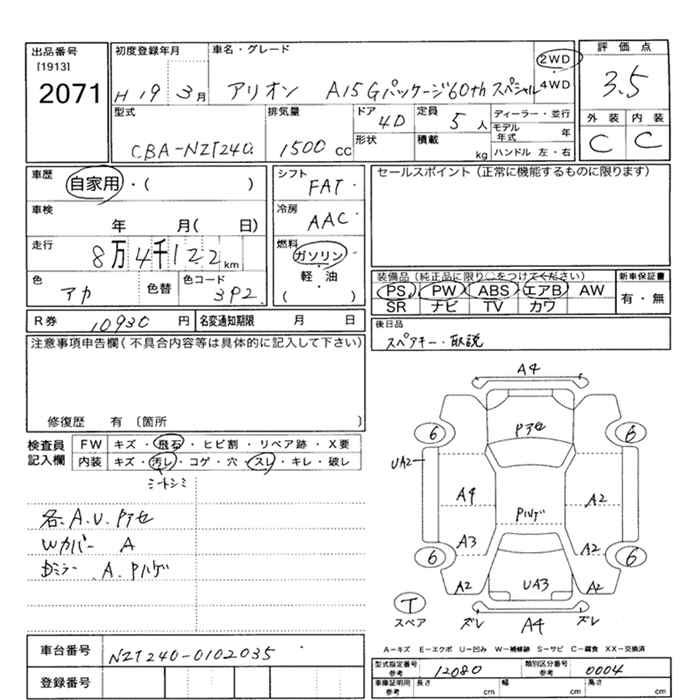 出品番号
[1913]
2071
初度登録年月
H 19年 3月
車名・グレード
アリオン A15Gパッケージ60thスペシャル
2WD
4WD
評価点
3.5
外装 内装
C C
型式
CBA-NZT240
排気量
1500 cc
ドア
4D
形状
定員
5 人
積載
kg
ディーラー・並行
モデル年式 年
ハンドル 左・右
車歴
自家用・( )
車検
年 月( 日)
走行
8万4千122 km
色
アカ
色替
色コード
3P2
シフト
FAT
冷房
AAC
燃料
ガソリン
軽・油
( )
セールスポイント(正常に機能するものに限ります)
装備品(純正品に限り○をつけてください)
PS PW ABS エアB AW
SR ナビ TV カワ
新車保証書
有・無
R券 10930 円
名変通知期限 月 日
後日品
スペアキー・取説
注意事項申告欄(不具合内容等は具体的に記入して下さい)
修復歴 有 〔箇所 〕
検査員記入欄
FW キズ・飛石・ヒビ割・リペア跡・X要
内装 キズ・汚レ・コゲ・穴・スレ・キレ・破レ
シートシミ
各.A.U.Pアセ
Wカバー A
Dミラー .A.Pハゲ
A4
Pアセ
6 6
UA2
A4 A2
Pハゲ
A3 A2
6 6
A2 UA3 A2
T
スペア
ズレ A4 ズレ
A-キズ E-エクボ U-凹み W-補修跡 S-サビ C-腐食 XX-交換済
車台番号
NZT240-0102035
登録番号
型式指定番号
参考
12080
類別区分番号
参考
0004
車庫証明用
参考
長さ cm 幅 cm 高さ cm